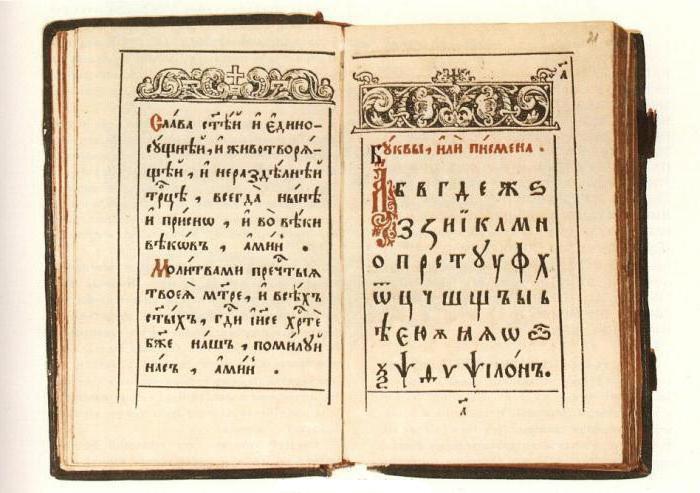 Слава ст҃ѣй и҆ є҆дино-
сꙋщнѣй, и҆ животворѧ-
щѣй, и҆ нераздѣлнѣй
трⷪ҇цѣ, всегда̀ ны́нѣ
и҆ при́снѡ, и҆ во вѣ́ки
вѣкѡ́въ, а҆ми́нь.
Моли́твами пречⷭ҇тыѧ
твоеѧ̀ мт҃ре, и҆ всѣ́хъ
ст҃ы́хъ, гдⷭ҇и і҆и҃се хрⷭ҇тѐ
бж҃е на́шъ, поми́лꙋй
на́съ, а҆ми́нь.
21
҂а
Бꙋ́квы, и҆лѝ пи́смена.
А Б В Г Д Е Ж Ѕ
З Ꙁ И Ї К Л М Н
О П Р С Т Ꙋ У Ф Х
Ѿ Ц Ч Ш Щ Ъ Ы Ь
Ѣ Є Ю Ѫ Ѩ Ѧ Ѡ
Ѯ Ѱ Д Ѵ Ѱілѡ́нъ.